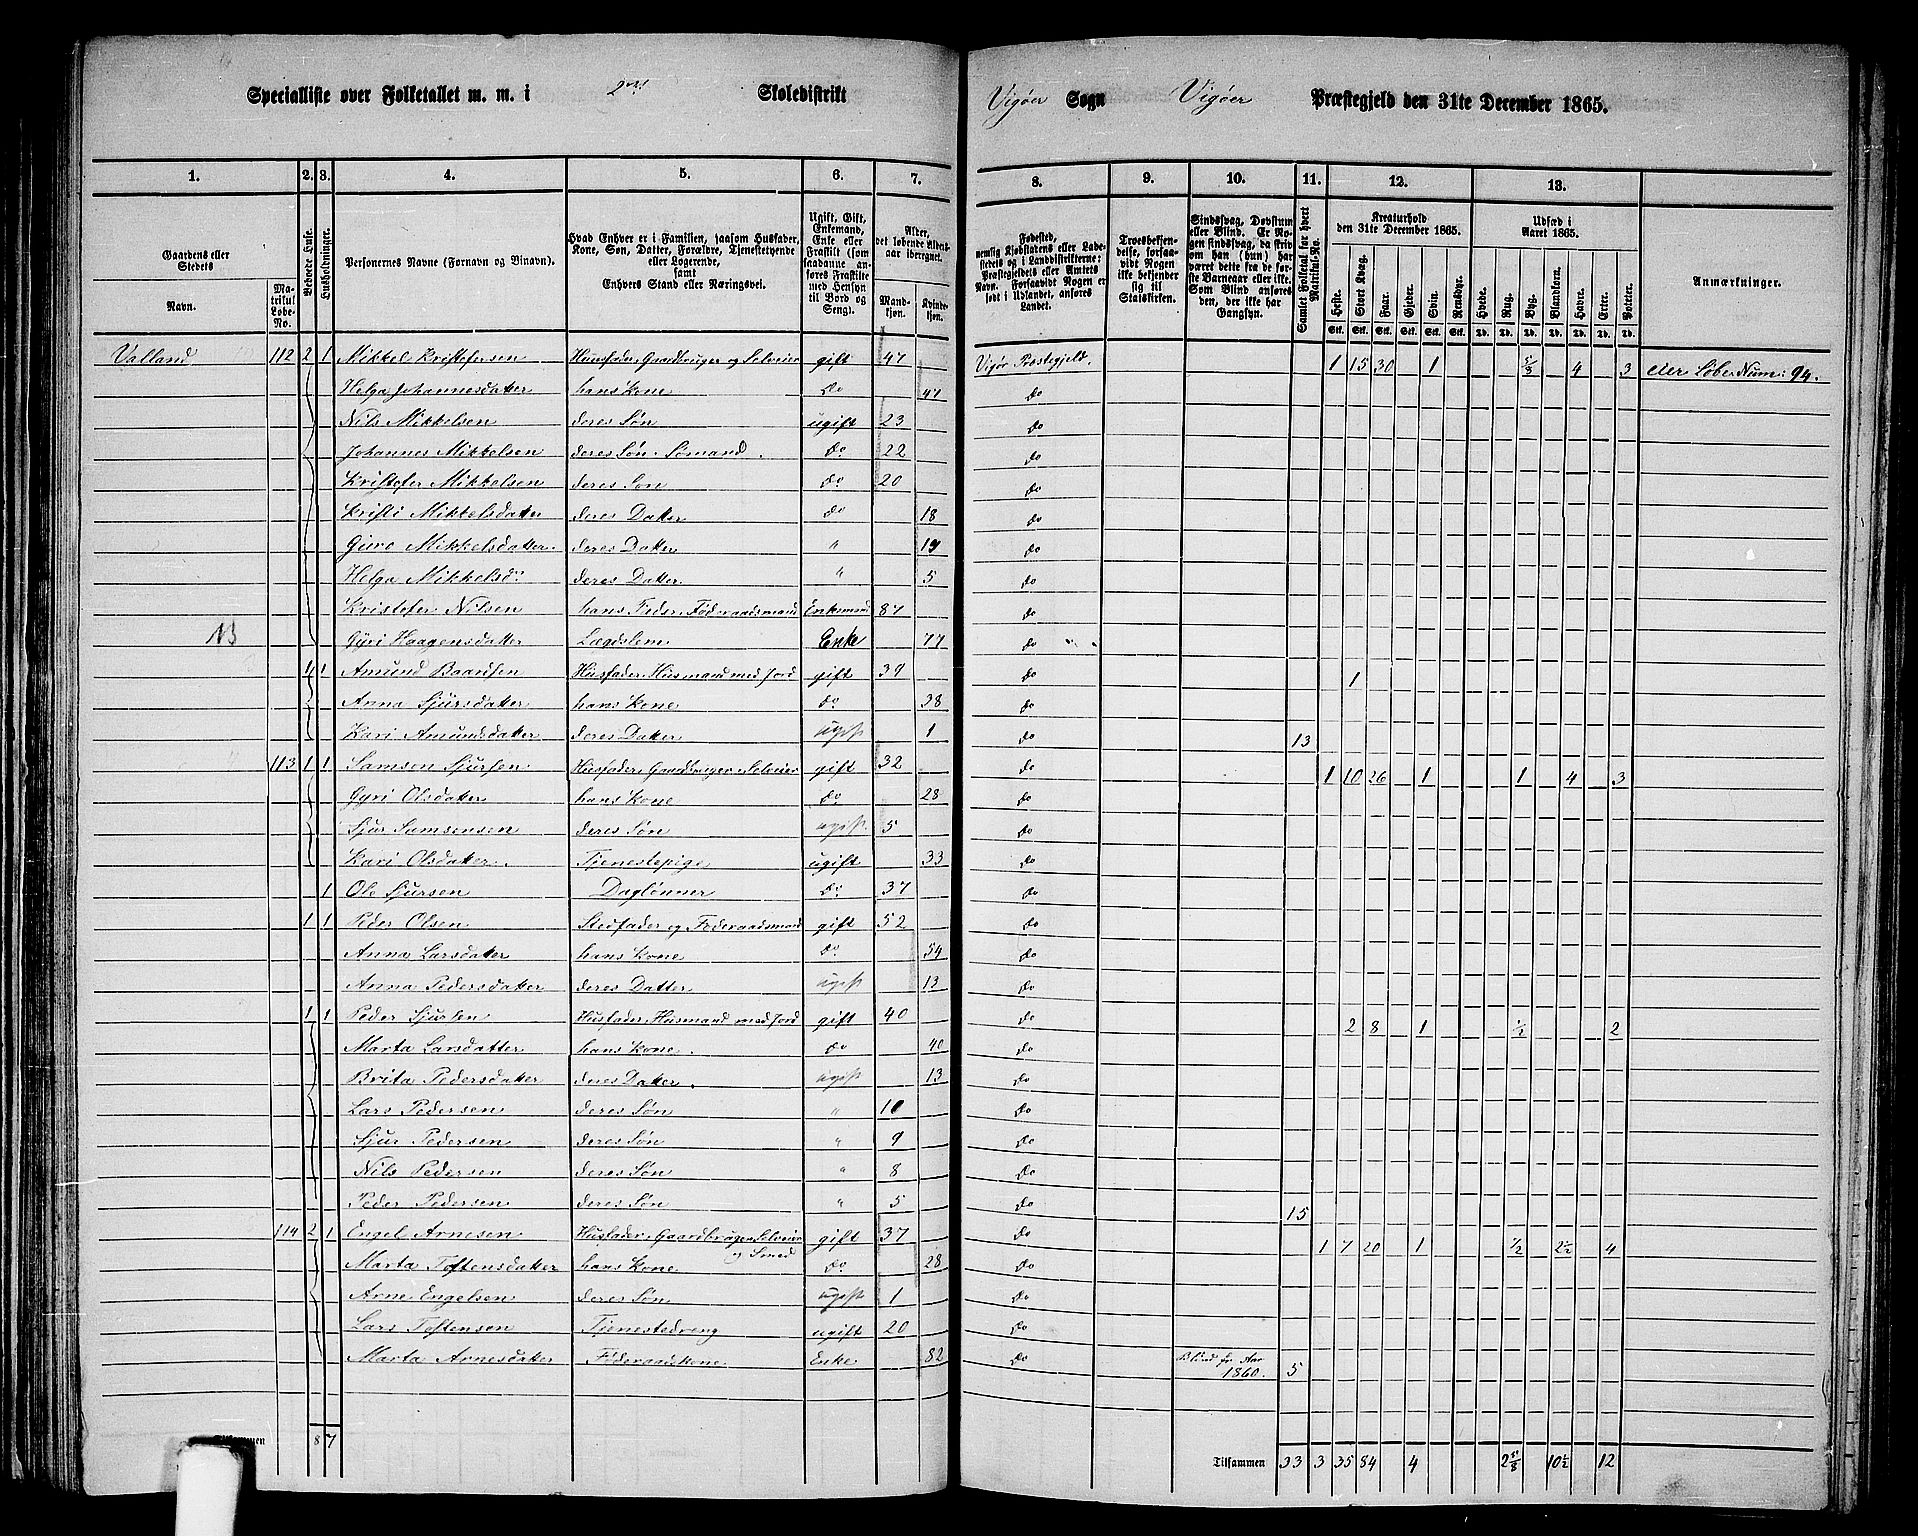 Specialliste over Folketallet m. m. i 2det Skoledistrikt Vigøer Sogn Vigøer Præstegjeld den 31te December 1865.
1. 2. 3. 4. 5. 6. 7. 8. 9. 10. 11. 12. 13.
Gaardens eller Stedets
Navn.
Matrikul Løbe-No.
Beboede Huse.
Husholdninger.
Personernes Navne (Fornavn og Binavn).
Hvad Enhver er i Familien, saasom Husfader, Kone, Søn, Datter, Forældre, Tjenestetyende eller Logerende, samt Enhvers Stand eller Næringsvei.
Ugift, Gift, Enkemand, Enke eller Fraskilt (som saadanne anføres Fraskilte med Hensyn til Bord og Seng).
Alder, det løbende Alders-aar iberegnet.
Mandkjøn. Kvindekjøn.
Fødested, nemlig Kjøbstadens eller Ladestedets og i Landdistrikterne: Præstegjeldets eller Amtets Navn. Forsaavidt Nogen er født i Udlandet, anføres Landet.
Troesbekjendelse, forsaavidt Nogen ikke bekjender sig til Statskirken.
Sindssvag, Døvstum eller Blind. Er Nogen sindssvag, da skrives om han (hun) har været dette fra de første Barneaar eller ikke. Som Blind anføres den, der ikke har Gangsyn.
Samlet Folketal for hvert Matrikul-No.
Kreaturhold den 31te December 1865.
Heste. Stort Kvæg. Faar. Gjeder. Svin. Rensdyr.
Udsæd i Aaret 1865.
Hvede. Rug. Byg. Blandkorn. Havre. Erter. Poteter.
Anmærkninger.
Valland 112 2 1 Mikkel Kristofersen Husfader, Gaardbruger og Selveier gift 47 Vigør Præstegjeld. 1 15 30 1 4 3 eier Løbe Num: 94.
Helga Johannesdatter hans Kone Do 47 Do
Nils Mikkelsen deres Søn ugift 23 Do
Johannes Mikkelsen deres Søn. Sømand. Do 22 Do
Kristofer Mikkelsen deres Søn Do 20 Do
Kristi Mikkelsdatter deres Datter Do 18 Do
Guro Mikkelsdatter. deres Datter " Do
Helga Mikkelsdr. deres Datter. " 5 Do
Kristofer Nilsen hans Fader, Føderaadsmand Enkemand 87 Do
Gyri Haagensdatter Lægdslem Enke 77 Do
1 1 Amund Baardsen Husfader, Husmand med Jord gift 39 Do 1
Anna Sjursdatter hans Kone Do 38 Do
Kari Amundsdatter deres Datter ugift 1 Do 13
113 1 1 Samson Sjursen Husfader, Gaardbruger, Selveier gift 32 Do 1 10 26 1 1 4 3
Gyri Olsdatter hans Kone Do 28 Do
Sjur Samsonsen deres Søn ugift. 5 Do
Kari Olsdatter. Tjenestepige ugift 33 Do
1 Ole Sjursen Daglønner Do 37 Do
1 1 Peder Olsen Stedfader og Føderaadsmand gift 52 Do
Anna Larsdatter hans Kone Do 54 Do
Anna Pedersdatter deres Datter ugift 13 Do
1 1 Peder Sjursen Husfader, Husmand med Jord gift 40 Do 2 8 1 1/2 2
Marta Larsdatter hans Kone. Do 40 Do
Brita Pedersdatter deres Datter. ugift 13 Do
Lars Pedersen deres Søn " Do
Sjur Pedersen deres Søn " 9 Do
Nils Pedersen deres Søn " 8 Do
Peder Pedersen deres Søn " 5 Do 15
114 2 1 Engel Arnesen Husfader, Gaardbruger, Selveier gift 37 Do 1 7 20 1 1/2 2 1/2 4
og Smed
Marta Tostensdatter hans Kone Do 28 Do
Arne Engelsen deres Søn ugift 1 Do
Lars Tostensen Tjenestedreng ugift 20 Do
Marta Arnesdatter Føderaadskone Enke 82 Do Blind fr Aar 1860. 5
Tilsammen 8 7 Tilsammen 33 3 35 84 4 2 5/8 10 1/2 12